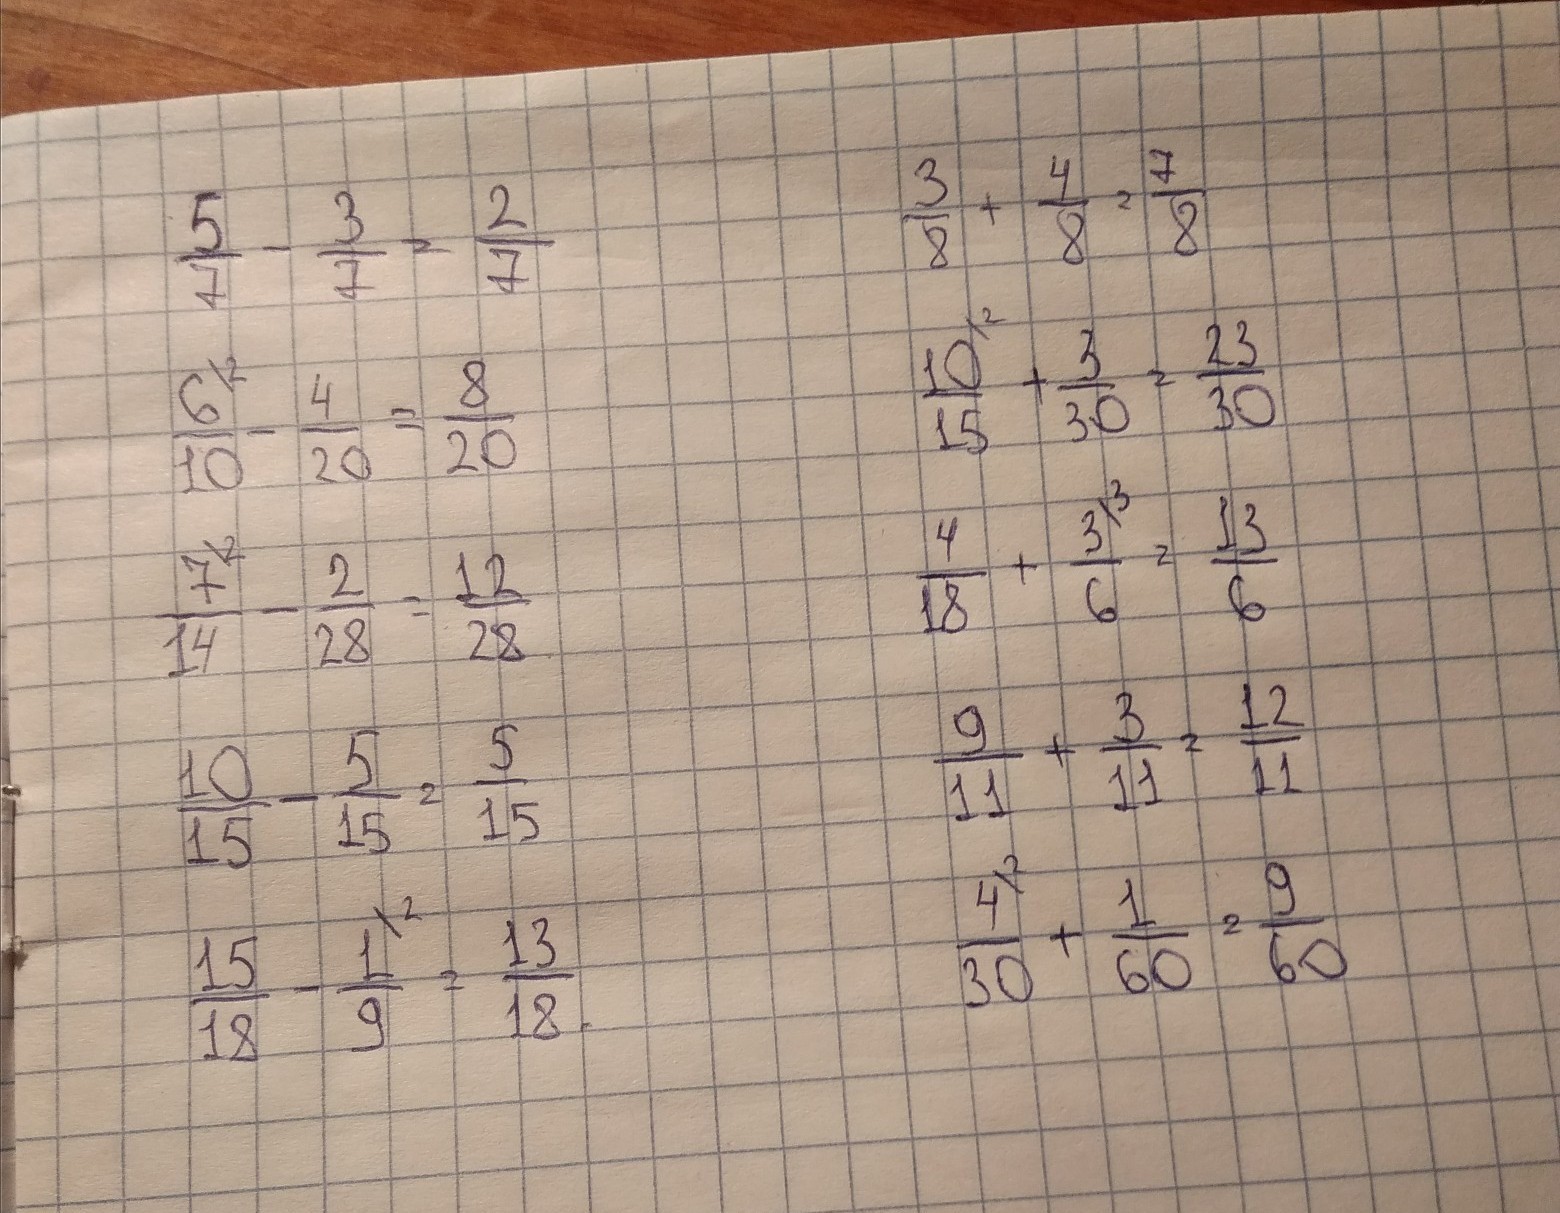 5/7 - 3/7 = 2/7
6\2/10 - 4/20 = 8/20
7\2/14 - 2/28 = 12/28
10/15 - 5/15 = 5/15
15/18 - 1\2/9 = 13/18
3/8 + 4/8 = 7/8
10\2/15 + 3/30 = 23/30
4/18 + 3\3/6 = 13/6
9/11 + 3/11 = 12/11
4\2/30 + 1/60 = 9/60